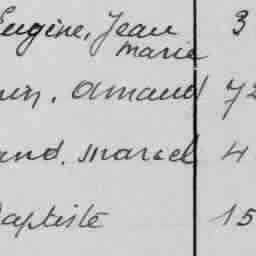 Eugène, Jean 3
Marie
Armand 72
Marcel 4
Baptiste 15